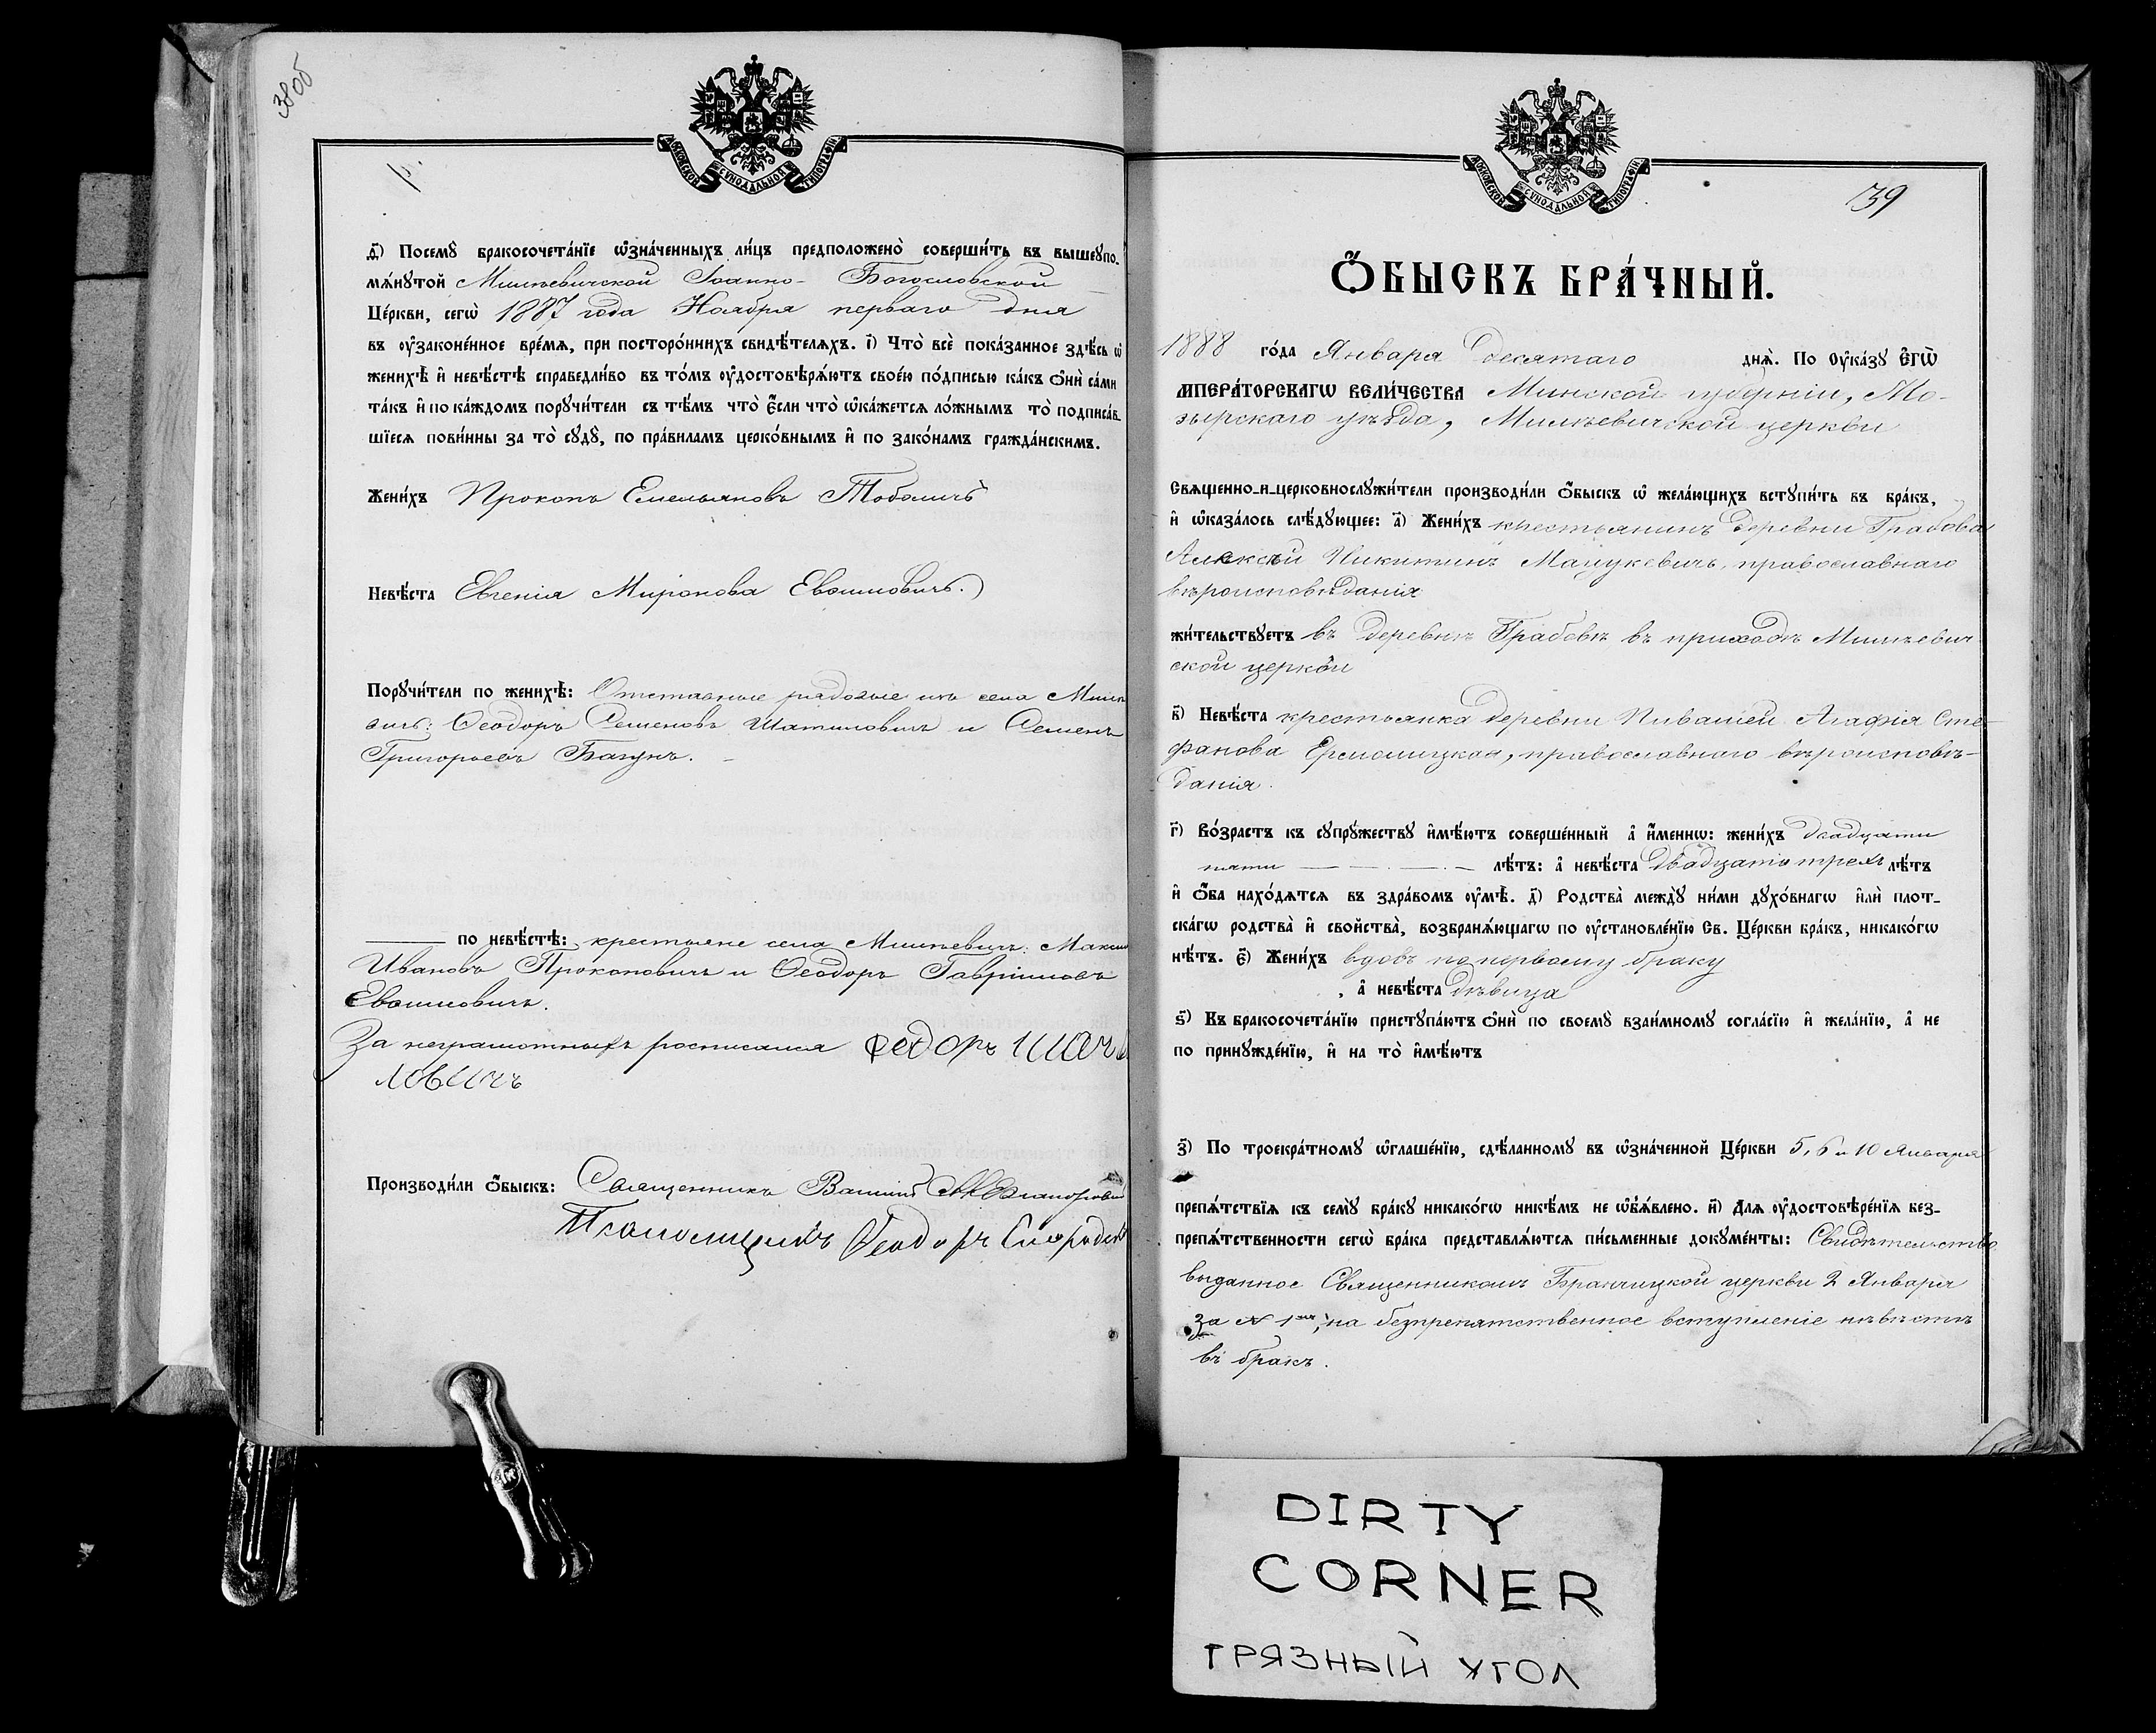 38об
МОСКОВСКОЙ СѴНОДАЛЬНОЙ ТИПОГРАФІИ
Посемꙋ̀ бракосочета́нїе ѡ҆зна́ченныхъ ли́цъ предположено̀ соверши́ть въ вышеꙋпо-
мѧ́нꙋтой Милевичской Іоанно-Богословской
Це́ркви, сегѡ̀ 1887 года Ноября перваго дня
въ ᲂу҆законе́нное вре́мѧ, при посторо́ннихъ свидѣ́телѧхъ. і҃) Что̀ всѐ пока́занное здѣ́сь ѡ҆
женихѣ̀ и҆ невѣ́стѣ справедли́во въ то́мъ ᲂу҆достовѣрѧ́ютъ свое́ю по́дписью ка́къ ѻ҆нѝ са́ми
та́къ и҆ по ка́ждомъ порꙋчи́тели съ тѣ́мъ что̀ є҆́сли что̀ ѡ҆ка́жетсѧ ло́жнымъ то̀ подписа́в-
шїесѧ пови́нны за то̀ сꙋдꙋ̀, по пра́виламъ церко́внымъ и҆ по зако́намъ гражда́нскимъ.
Жени́хъ Прокопъ Емельяновъ Тоболичъ
Невѣ́ста Евгенія Миронова Евтиловичъ.
Порꙋчи́тели по женихѣ̀: Отставные рядовые изъ села Миле
вичъ: Ѳеодоръ Семеновъ Шатиловичъ и Семенъ
Григорьевъ Багунъ.
по невѣ́стѣ: крестьяне села Милевичъ: Макси
Ивановъ Прокоповичъ и Ѳеодоръ Гавріиловъ
Евтиловичъ.
За неграмотныхъ росписался Федоръ Шати
ловичъ
Производи́ли ѻ҆́быскъ: Священникъ
Псаломщикъ Ѳеодоръ
МОСКОВСКОЙ СѴНОДАЛЬНОЙ ТИПОГРАФІИ
39
Ѻ҆́БЫСКЪ БРА́ЧНЫЙ.
1888 го́да Января десятаго днѧ̀. По ᲂу҆ка́зꙋ Є҆ГѠ̀
ИМПЕРА́ТОРСКАГѠ ВЕЛИ́ЧЕСТВА Минской губерніи, Мо-
зырскаго уѣзда, Милевичской церкви
Свѧщенно-и-церковнослꙋжи́тели производи́ли ѻ҆́быскъ ѡ҆ жела́ющихъ встꙋпи́ть въ бра́къ,
и҆ ѡ҆каза́лось слѣ́дꙋющее: а҃) Жени́хъ крестьянинъ деревни Грабова
Алексѣй Никитинъ Мацукевичъ, православнаго
вѣроисповѣданія
жи́тельствꙋетъ въ деревнѣ Грабовѣ въ приходѣ Милевич
ской церкви
в҃) Невѣ́ста крестьянка деревни Пивашей Агафія Сте-
фанова Ермолицкая, православнаго вѣроисповѣ-
данія.
г҃) Во́зрастъ къ сꙋпрꙋ́жествꙋ и҆мѣ́ютъ соверше́нный а҆̀ и҆́меннѡ: жени́хъ двадцати
пяти лѣ́тъ: а҆̀ невѣ́ста двадцати трехъ лѣ́тъ
и҆ ѻ҆́ба нахо́дѧтсѧ въ здра́вомъ ᲂу҆мѣ̀. д҃) Родства̀ междꙋ̀ ни́ми дꙋхо́внагѡ и҆лѝ плот-
ска́гѡ родства̀ и҆ свойства̀, возбранѧ́ющагѡ по ᲂу҆становле́нїю Св. Це́ркви бра́къ, никако́гѡ
нѣ́тъ. є҃) Жени́хъ вдовъ по первому браку
, а҆̀ невѣ́ста дѣвица
ѕ҃) Къ бракосочета́нїю пристꙋпа́ютъ ѻ҆нѝ по своемꙋ̀ взаи́мномꙋ согла́сїю и҆ жела́нїю, а҆̀ не
по принꙋжде́нїю, и҆ на то̀ и҆мѣ́ютъ
з҃) По троекра́тномꙋ ѡ҆глаше́нїю, сдѣ́ланномꙋ въ ѡ҆зна́ченной Це́ркви 5, 6 и 10 Января
препѧ́тствїѧ къ семꙋ̀ бра́кꙋ никако́гѡ никѣ́мъ не ѡ҆б̾ѧ́влено. и҃) Длѧ ᲂу҆достовѣре́нїѧ без-
препѧ́тственности сегѡ̀ бра́ка представлѧ́ютсѧ пи́сьменные докꙋме́нты: Свидѣтельство
выданное Священникомъ Бранчицкой церкви 2 Января
за № 1мъ, на безпрепятственное вступленіе невѣстѣ
въ бракъ.
DIRTY
CORNER
ГРЯЗНЫЙ УГОЛ